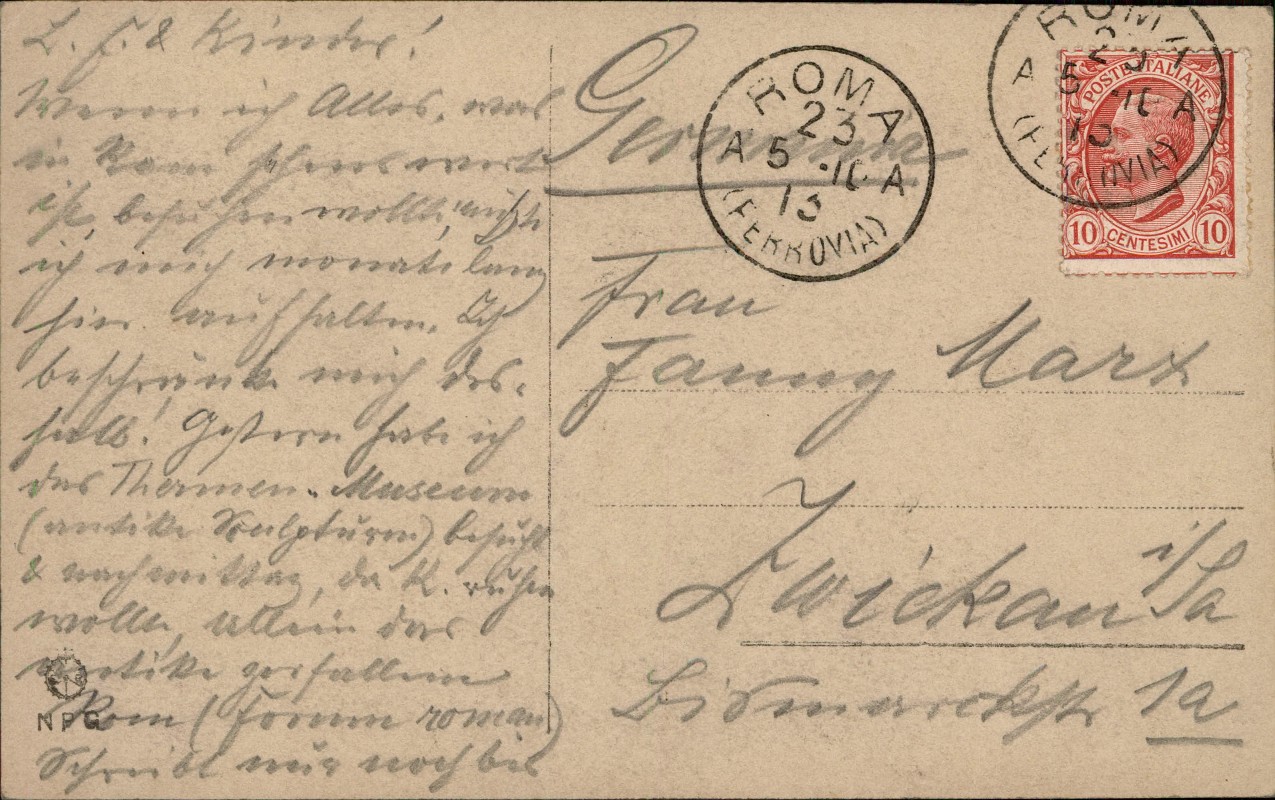 L. F. & Kinder!
Wenn ich Alles, was
in Rom sehenswert
ist, besuchen wollte, müßte
ich mich monatelang
hier aufhalten. Ich
beschränke mich des-
halb! Gestern habe ich
das Thermen-Museum
(antike Sculpturen) besucht
& nachmittag, da K. ruhen
wollte, allein das
antike zerfallene
Rom (Forum roman)
Schreibt nur noch bis
NPG
Germania
ROMA
23
A 5 ·10 A
13
(FERROVIA)
ROMA
23
A 5 ·10 A
13
(FERROVIA)
POSTE ITALIANE
10 CENTESIMI 10
Frau
Fanny Marx
Zwickau i/Sa
Bismarckstr 1a